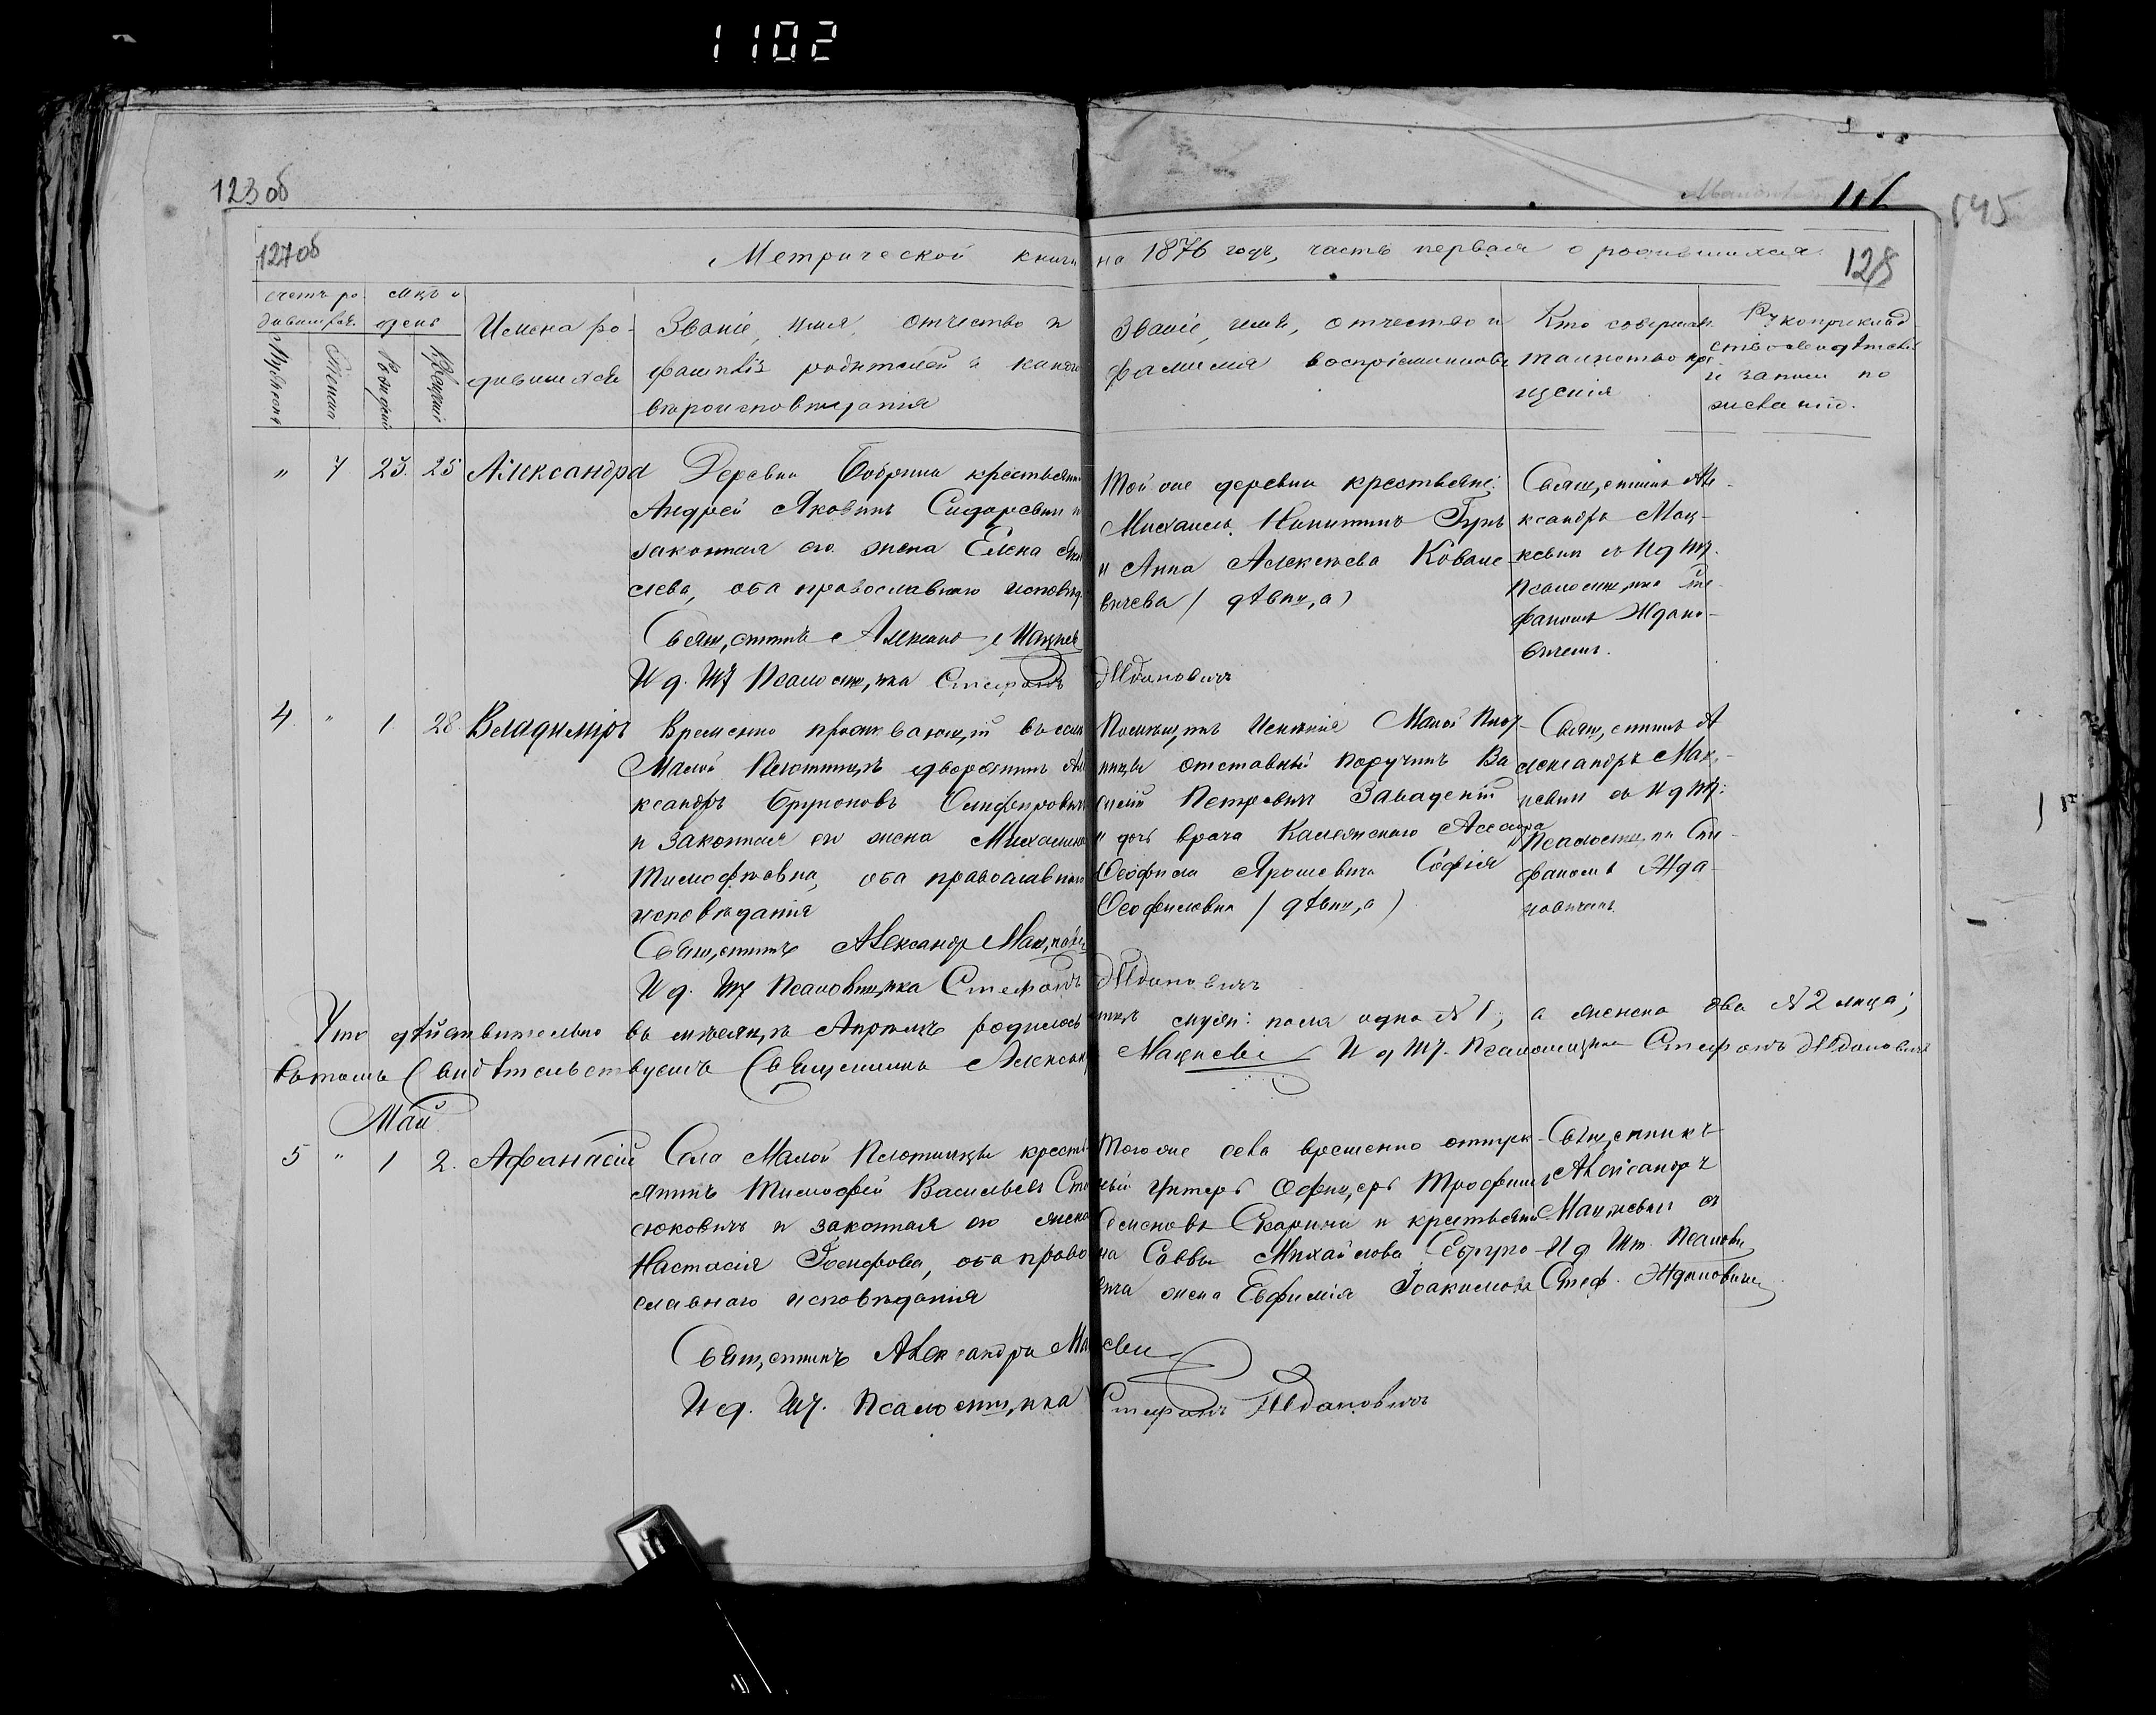 1102
123 об
127 об
128
145
Метрической книги на 1876 годъ, часть первая о родившихся
Счетъ ро-
дившихся.
Мужеска
Женска
Мцъ и
день
Рожденія
Крещенія
Имена ро-
дившихся
Званіе, имя, отчество и
фамилія родителей и какого
вѣроисповѣданія
Званіе, имя, отчество и
фамилія воспріемниковъ
Кто совершалъ
таинство кре-
щенія
Рукоприклад-
ство свидѣтелей
и записи по
желанію.
" 7 23. 25 Александра
Деревни Бобрики крестьянинъ
Андрей Яковлевъ Сидоревичъ и
законная его жена Елена
оба православнаго исповѣд.
Священникъ Александръ Мацкев
И д. Шт Псаломщика Стефанъ Жданович
Той же деревни крестьяне:
Михаилъ Никитинъ
и Анна Алексѣева Ковале-
вичева / дѣвица /
Священникъ Але-
ксандръ Мац-
кевичъ съ И д шт.
Псаломщика Сте-
фаномъ Ждано-
вичемъ.
4. " 1. 28. Владиміръ
Временно проживающій въ селѣ
Малой Плотницѣ дворянинъ Але
ксандръ Онуфріевичъ
и законная его жена Михалина
Тимофѣевна, оба православнаго
исповѣданія
Священникъ Александръ Мацкевич
И д. Шт Псаломщика Стефанъ Жданович
Помѣщикъ Имѣнія Малой Плот-
ницы отставный Поручикъ Ва
силій Петровичъ Завадскій
и дочь врача Коллежскаго Ассесора
Ѳеофила Ярошевича Софія
Ѳеофиловна / дѣвица /
Священникъ А
лександръ Мац-
кевичъ съ И д шт.
Псаломщика Сте-
фаномъ Жда-
новичемъ
Что дѣйствительно въ мѣсяцѣ Апрѣлѣ родилось муж: пола одно N 1, а женска два N 2 лица;
въ томъ Свидѣтельствуемъ Священникъ Александръ Мацкевичъ И д Шт. Псаломщика Стефанъ Ждановичъ
Май
5 " 1 2. Афанасій
Села Малой Плотницы кресть-
янинъ Тимофей Васильевъ Ста
сюковичъ и законная его жена
Настасія Іосифова, оба право
славнаго исповѣданія
Того же села временно отпуск-
ный Унтеръ Офицеръ Трофимъ
Семеновъ и крестьяни-
на Саввы Михайлова
вича жена Евфимія Іоакимова
Священникъ
Александръ
Мацкевичъ съ
И д Шт. Псаломщ
Стеф. Ждановичем
Священникъ Александръ Мацкевич
И д. Шт. Псаломщика Стефанъ Жданович